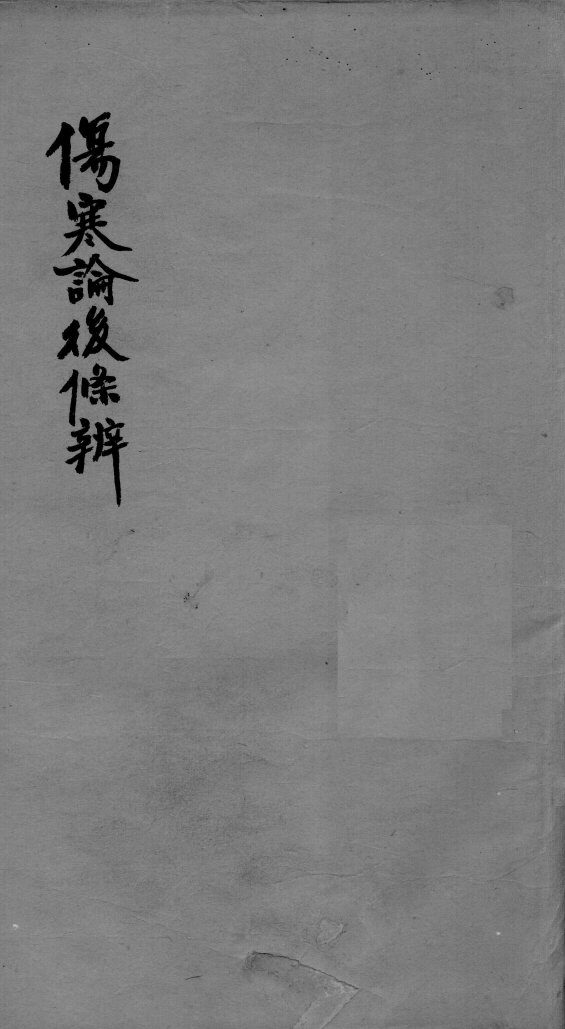 傷寒論後條辨